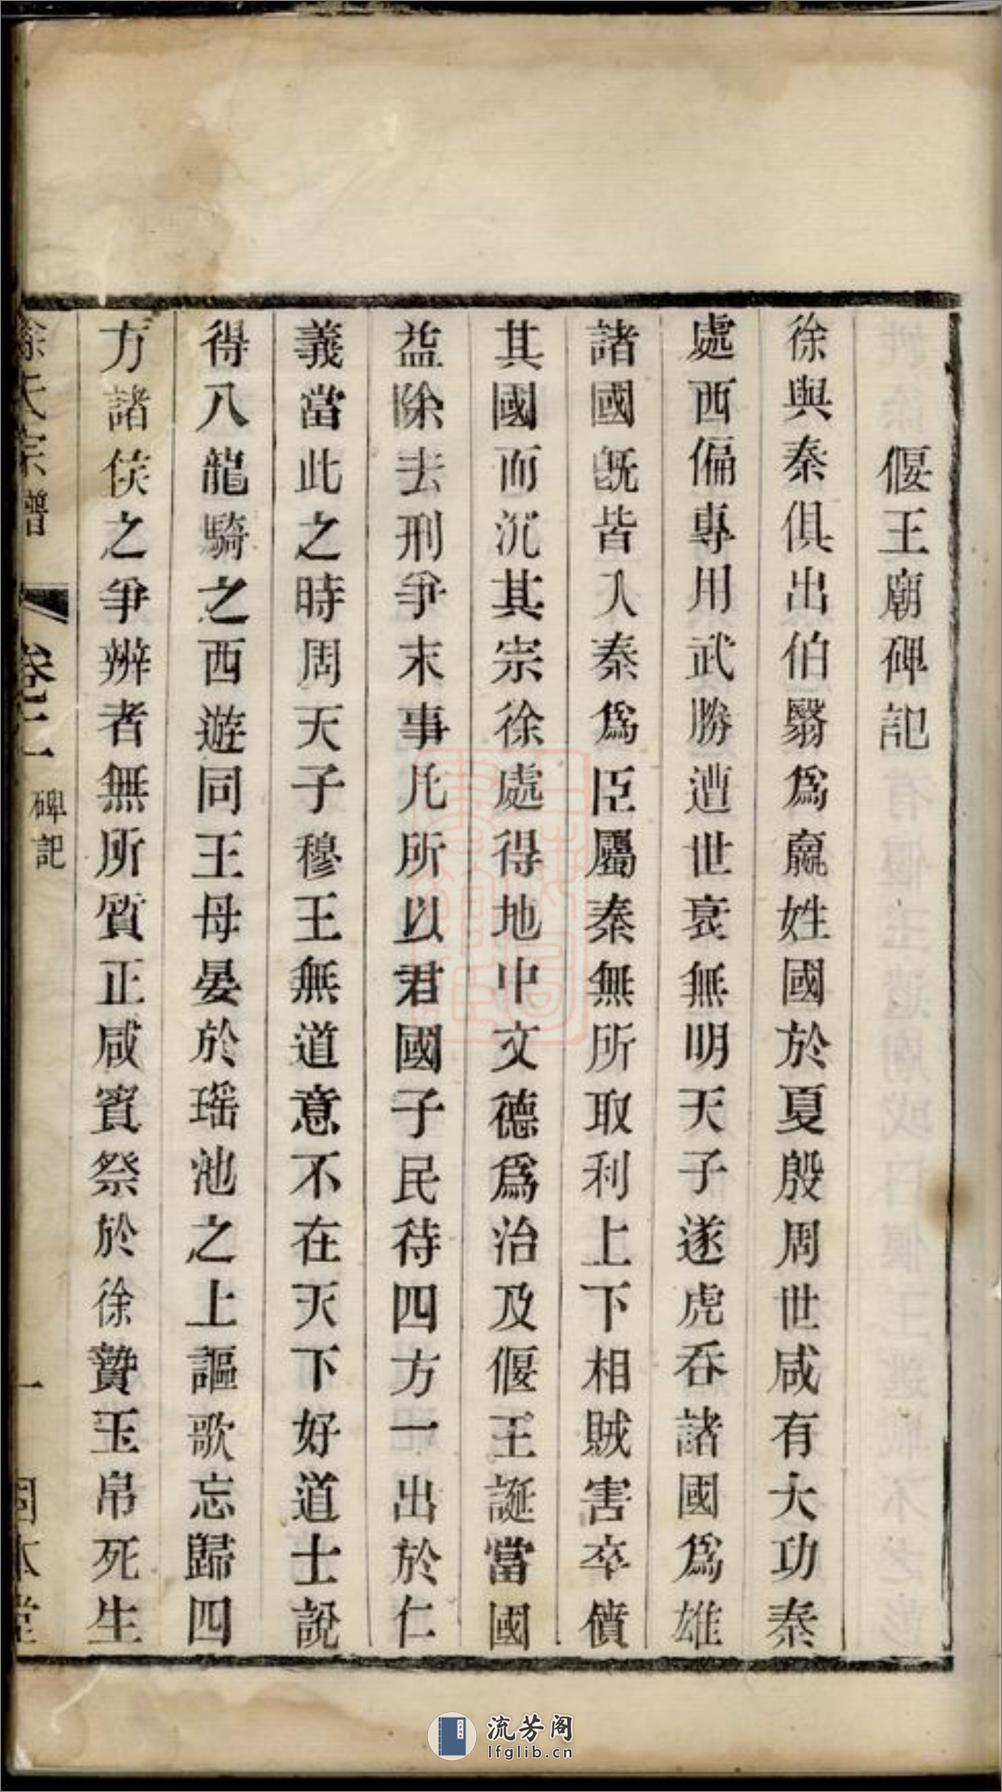 偃王廟碑記
徐與秦俱出伯翳爲嬴姓國於夏殷周世咸有大功秦
處西偏專用武勝遭世衰無明天子遂虎吞諸國爲雄
諸國既皆入秦爲臣屬秦無所取利上下相賊害卒僨
其國而沉其宗徐處得地中文德爲治及偃王誕當國
益除去刑爭末事凡所以君國子民待四方一出於仁
義當此之時周天子穆王無道意不在天下好道士說
得八龍騎之西遊同王母晏於瑶池之上謳歌忘歸四
方諸侯之爭辨者無所質正咸賓祭於徐贄玉帛死生
徐氏宗譜 卷三 碑記 一 固本堂
流芳阁
lfglib.cn